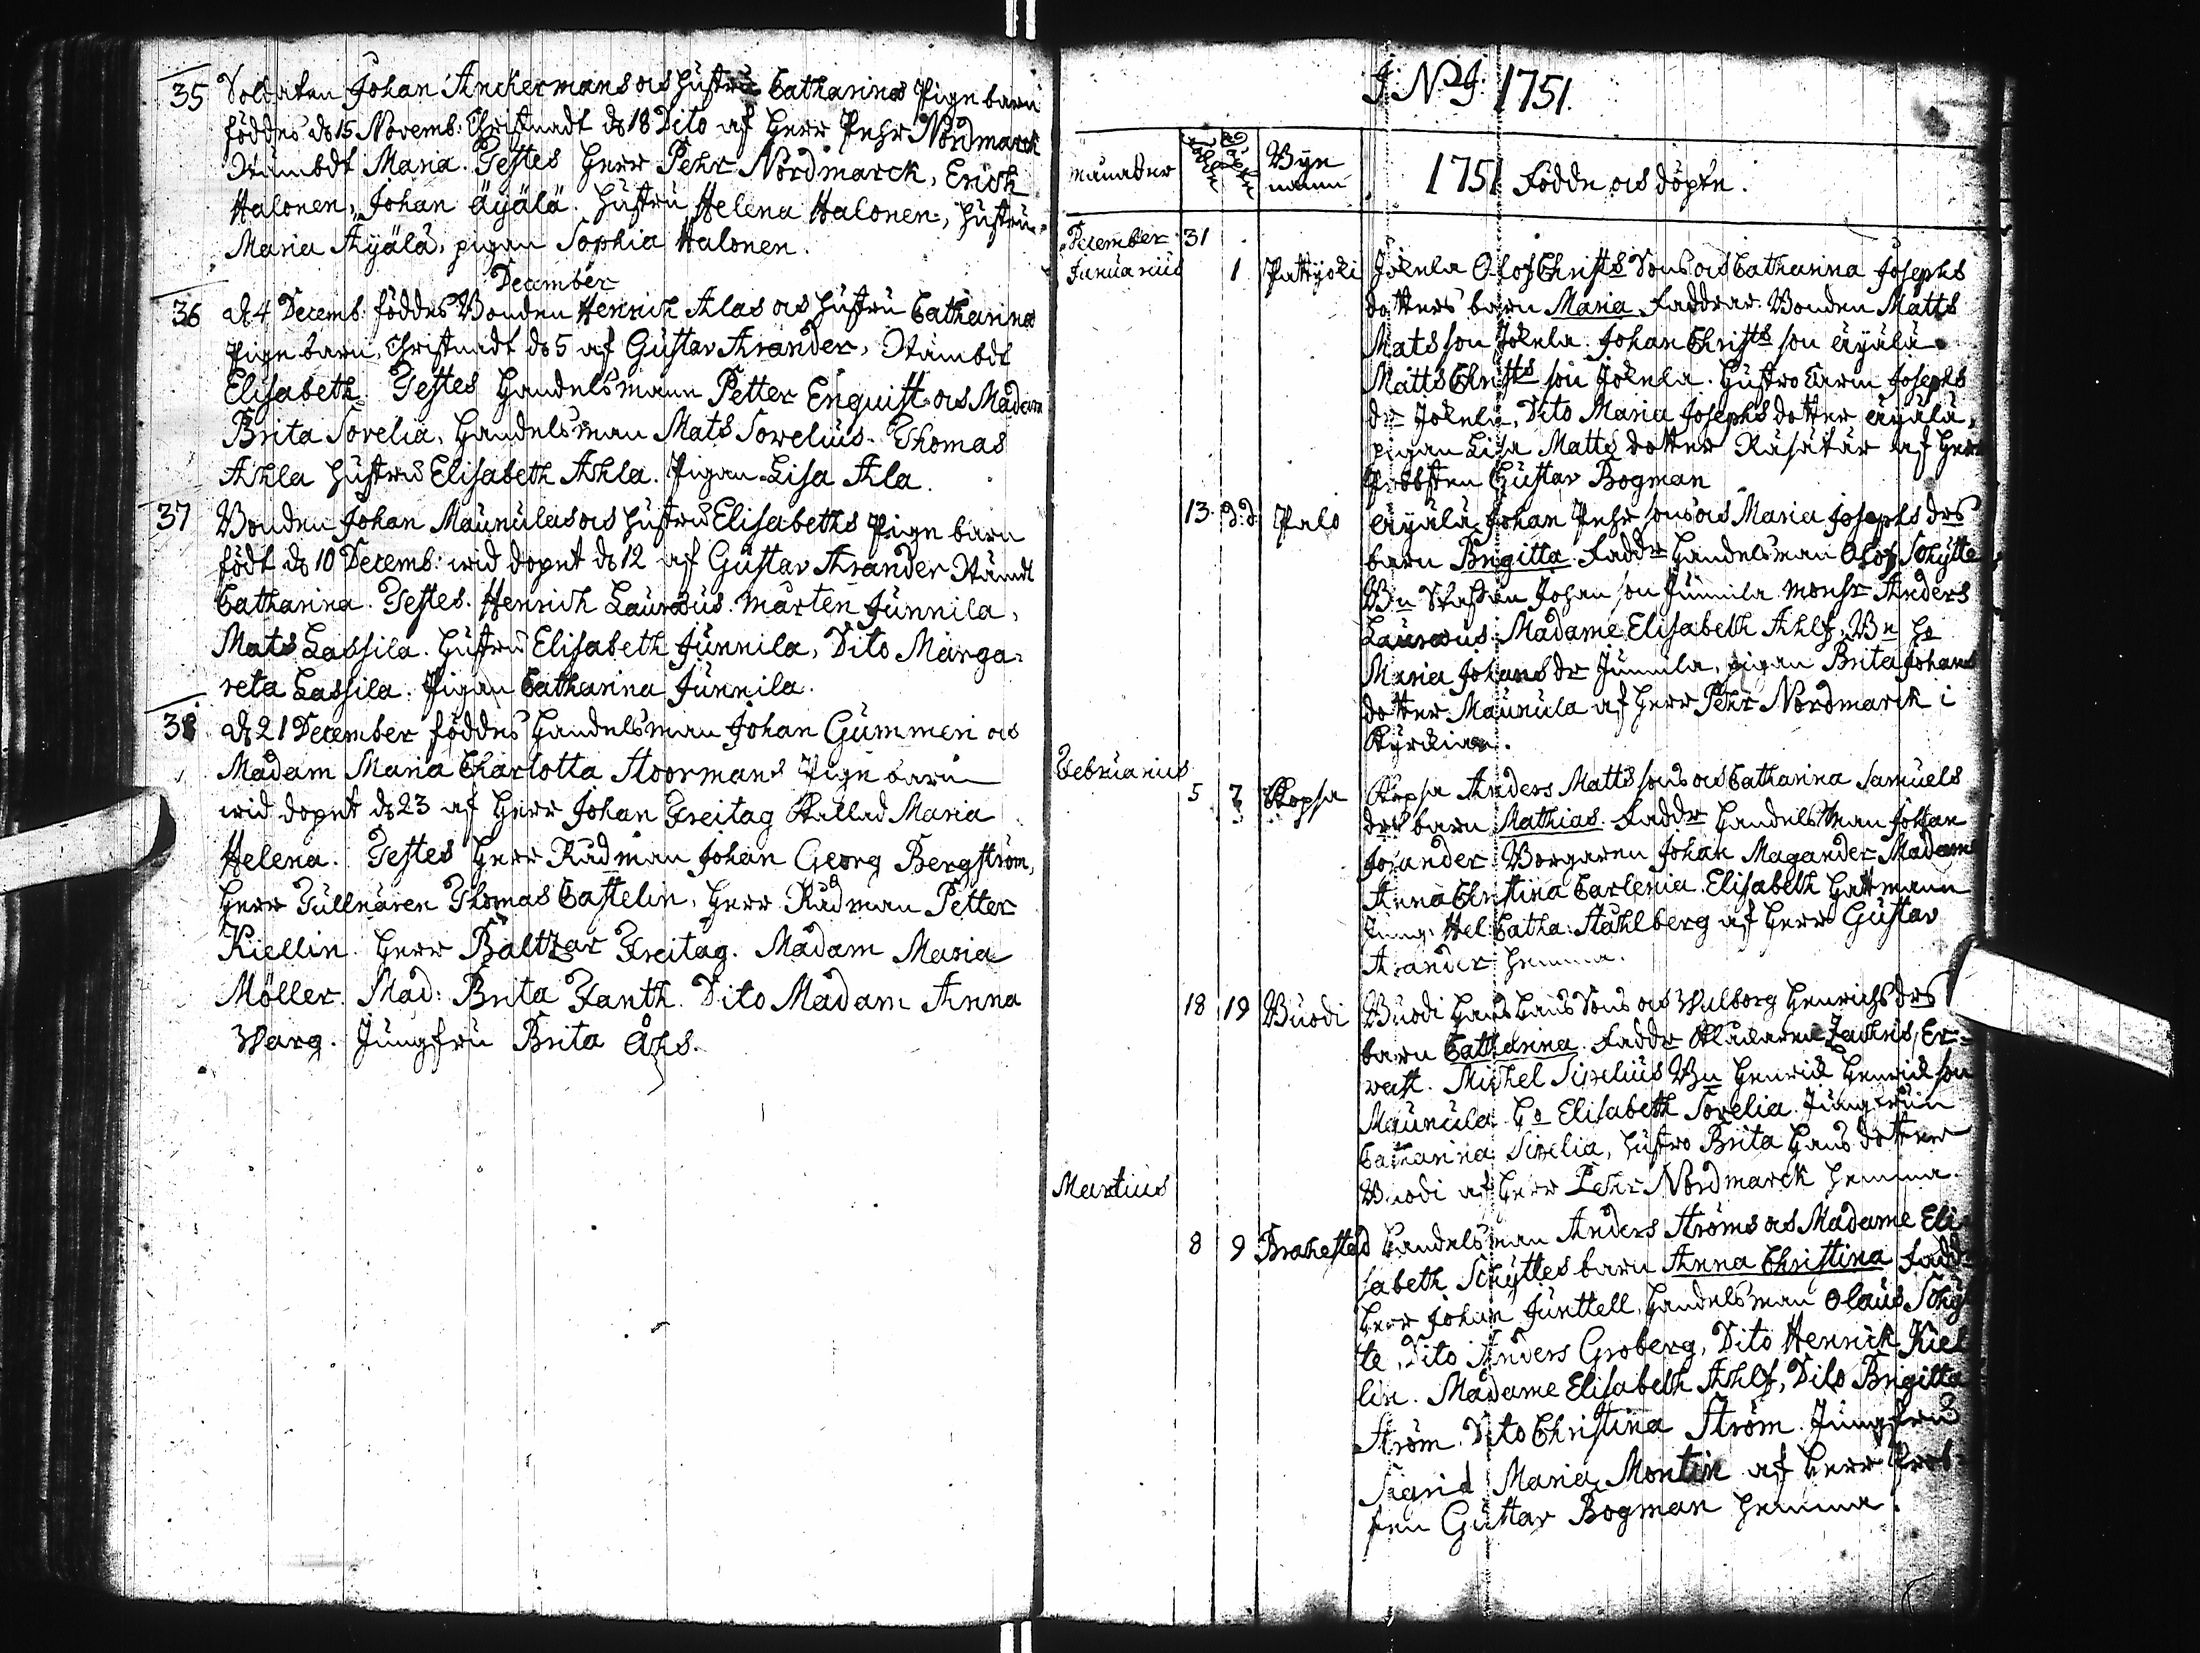 35 Soldaten Johan Anckermans och hustru Catharinas Pige barn
föddes d. 15 Novemb: Christnadt d. 18 Dito af Herr Pehr Nordmarck
Nämbdt Maria. Testes Herr Pehr Nordmarck, Erich
Halonen, Johan Äyälä. hustru Helena Halonen, hustru
Maria Äyälä, pigan Sophia Halonen.
December
36 d. 4 Decemb. föddes Bonden Henrich Alas och hustru Catharinas
Pige barn, Christnadt d. 5 af Gustav Arander, Nämbdt
Elisabeth. Testes Handelsmann Petter Enquist och Madam
Brita Sovelia, Handelsman Mats Sovelius. Thomas
Ahla hustru Elisabeth Ahla. Pigan Lisa Ala.
37 Bonden Johan Maunulas och hustru Elisabeths Pige barn
födt d. 10 Decemb: wid dopet d. 12 af Gustav Arander Nämdt
Catharina. Testes. Henrich Lauræus. Mårten Junnila,
Mats Lassila. hustru Elisabeth Junnila, Dito Marga-
reta Lassila. Pigan Catharina Junnila.
38 d. 21 December föddes Handelsman Johan Gummeri och
Madam Maria Charlotta Stoormans Pige barn
wid dopet d. 23 af Herr Johan Freitag Kallad Maria
Helena. Testes Herr Rådman Johan Georg Bergström,
Herr Tullnären Thomas Castelin, Herr Rådman Petter
Kiellin. Herr Baltzar Freitag. Madam Maria
Möller. Mad: Brita Fanth. Dito Madam Anna
Warg. Jungfru Brita Åhs.
J. N. J. 1751.
månader födde döpte Bye namn 1751 Födde och döpte.
December 31
Januarius 1 Pattijoki Jokela Olof Christs Sons och Catharina Josephs
dotters barn Maria. Faddrar. Bonden Matts
Mats son Jokela. Johan Christs son Äyälä
Matts Christs son Jokela. Hustro Carin Josephs
dr Jokela, Dito Maria Josephs dotter Äyälä,
pigan Lisa Matts dotter af Herr
Probsten Gustav Bogman
13. d:d: Palo Äyälä Johan Pehr sons och Maria Josephs drs
barn Brigitta. Faddr Handelsman Olof Schytte
Bn Staffan Johan son Junnila Monsr Anders
Lauræus. Madame Elisabeth Ahlf, Bn ho
Maria Johans dr Junnila, pigan Brita Johans
dotter Maunula af Herr Pehr Nordmarck i
Kyrkian.
Februarius
5 7 Kopsa Kopsa Anders Matts sons och Catharina Samuels
drs barn Mathias. Faddr Handelsman Johan
Borgaren Johan Magander Madame
Anna Christina Carlenia. Elisabeth Hattmann
Jung: Hel: Catha: Stahlberg af Herr Gustav
Arander hemma.
18 19 Buodi Buodi Hans Hans Sons och Walborg Henrichs drs
barn Catharina. Faddr Zachris Er-
vast. Michel Sipelius Bn Henrick Henrick son
Maunula. ho Elisabeth Sovelia. Jungfrun
Catharina Sipelia, hustro Brita Hans dotter
Buodi af Herr Pehr Nordmarck hemma.
Martius
8 9 Brahestad Handelsman Anders Ströms och Madame Eli-
sabeth Schyttes barn Anna Christina Faddr
Herr Johan Junttell, Handelsman Olaus Schyt-
te, Dito Anders Groberg, Dito Henrick Kiel-
lin. Madame Elisabeth Ahlf, Dito Brigitta
Ström. Dito Christina Ström. Jungfru
Sigrid Maria Montin af Herr Prob-
sten Gustav Bogman hemma.